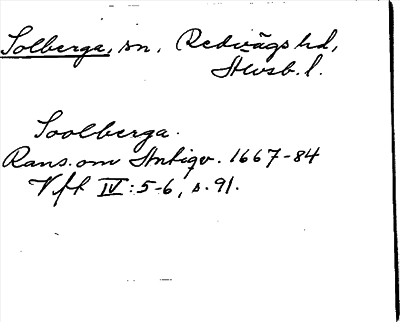 Solberga, sn, Redvägs hd,
Älvsb. l.
Soolberga.
Rans. om Antiqv. 1667-84
Vft IV: 5-6, s. 91.